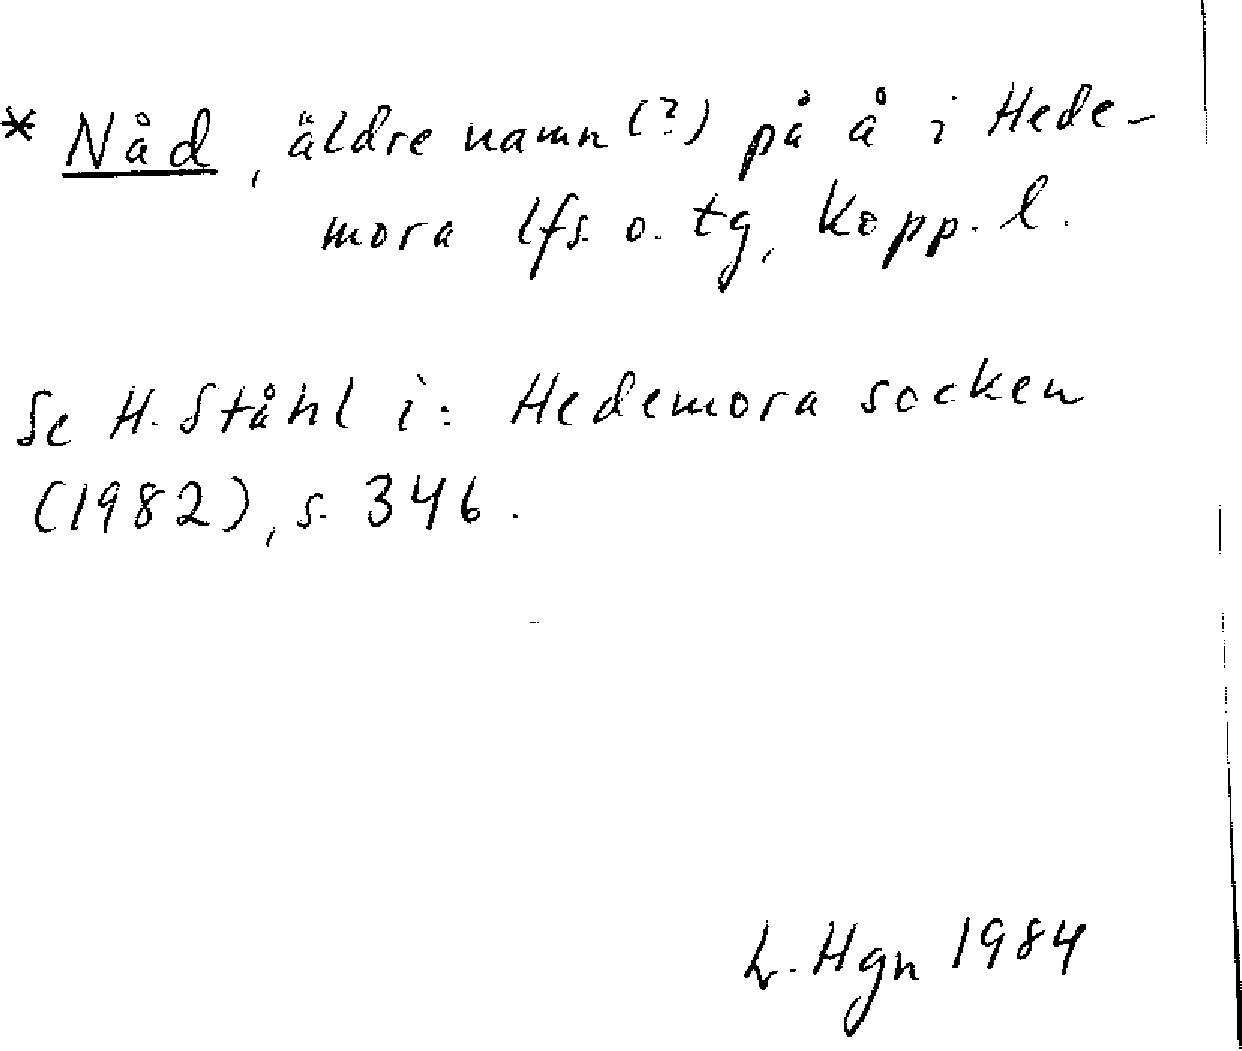 * Nåd, äldre namn (?) på å i Hede-
mora lfs. o. tg, Kopp. l.
Se H. Ståhl i: Hedemora socken
(1982), s. 346.
L. Hgn 1984